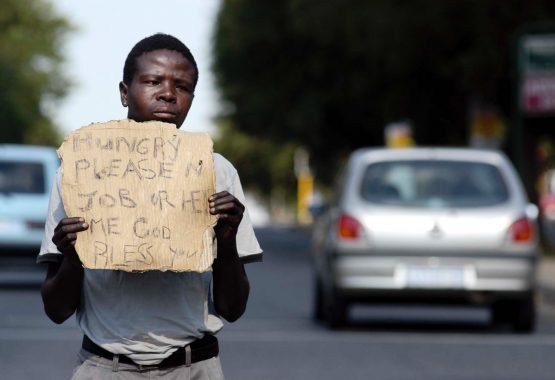 HUNGRY
PLEASE N
JOB OR HE
ME GOD
BLESS YOU